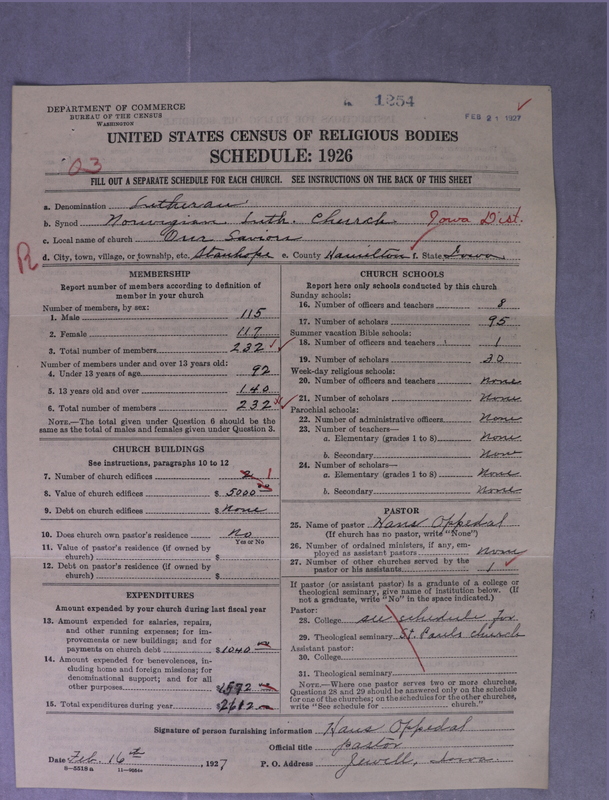 1254
FEB 21 1927
DEPARTMENT OF COMMERCE
BUREAU OF THE CENSUS
WASHINGTON
UNITED STATES CENSUS OF RELIGIOUS BODIES
SCHEDULE: 1926
03
FILL OUT A SEPARATE SCHEDULE FOR EACH CHURCH. SEE INSTRUCTIONS ON THE BACK OF THIS SHEET
a. Denomination Lutheran
b. Synod Norwigian Luth. Church Iowa Dist.
c. Local name of church Our Savior
R d. City, town, village, or township, etc. Stanhope e. County Hamilton f. State Iowa
MEMBERSHIP
Report number of members according to definition of
member in your church
Number of members, by sex:
1. Male 115
2. Female 117
3. Total number of members 232
Number of members under and over 13 years old:
4. Under 13 years of age 92
5. 13 years old and over 140
6. Total number of members 232
NOTE.—The total given under Question 6 should be the
same as the total of males and females given under Question 3.
CHURCH BUILDINGS
See instructions, paragraphs 10 to 12
7. Number of church edifices 1
8. Value of church edifices $ 5000
9. Debt on church edifices $ None
10. Does church own pastor's residence? No
Yes or No
11. Value of pastor's residence (if owned by
church) $
12. Debt on pastor's residence (if owned by
church) $
EXPENDITURES
Amount expended by your church during last fiscal year
13. Amount expended for salaries, repairs,
and other running expenses; for im-
provements or new buildings; and for
payments on church debt $ 1040
14. Amount expended for benevolences, in-
cluding home and foreign missions; for
denominational support; and for all
other purposes $ 1572
15. Total expenditures during year $ 2612
CHURCH SCHOOLS
Report here only schools conducted by this church
Sunday schools:
16. Number of officers and teachers 8
17. Number of scholars 95
Summer vacation Bible schools:
18. Number of officers and teachers 1
19. Number of scholars 30
Week-day religious schools:
20. Number of officers and teachers None
21. Number of scholars None
Parochial schools:
22. Number of administrative officers None
23. Number of teachers—
a. Elementary (grades 1 to 8) None
b. Secondary None
24. Number of scholars—
a. Elementary (grades 1 to 8) None
b. Secondary None
PASTOR
25. Name of pastor Hans Oppedal
(If church has no pastor, write "None")
26. Number of ordained ministers, if any, em-
ployed as assistant pastors None
27. Number of other churches served by the
pastor or his assistants 1
If pastor (or assistant pastor) is a graduate of a college or
theological seminary, give name of institution below. (If
not a graduate, write "No" in the space indicated.)
Pastor:
28. College see schedule for
29. Theological seminary St. Pauls church
Assistant pastor:
30. College
31. Theological seminary
NOTE.—Where one pastor serves two or more churches,
Questions 28 and 29 should be answered only on the schedule
for one of the churches; on the schedules for the other churches,
write "See schedule for church."
Signature of person furnishing information Hans Oppedal
Official title pastor
Date Feb. 16th, 1927 P. O. Address Jewell, Iowa.
8—5518a 11—9684a